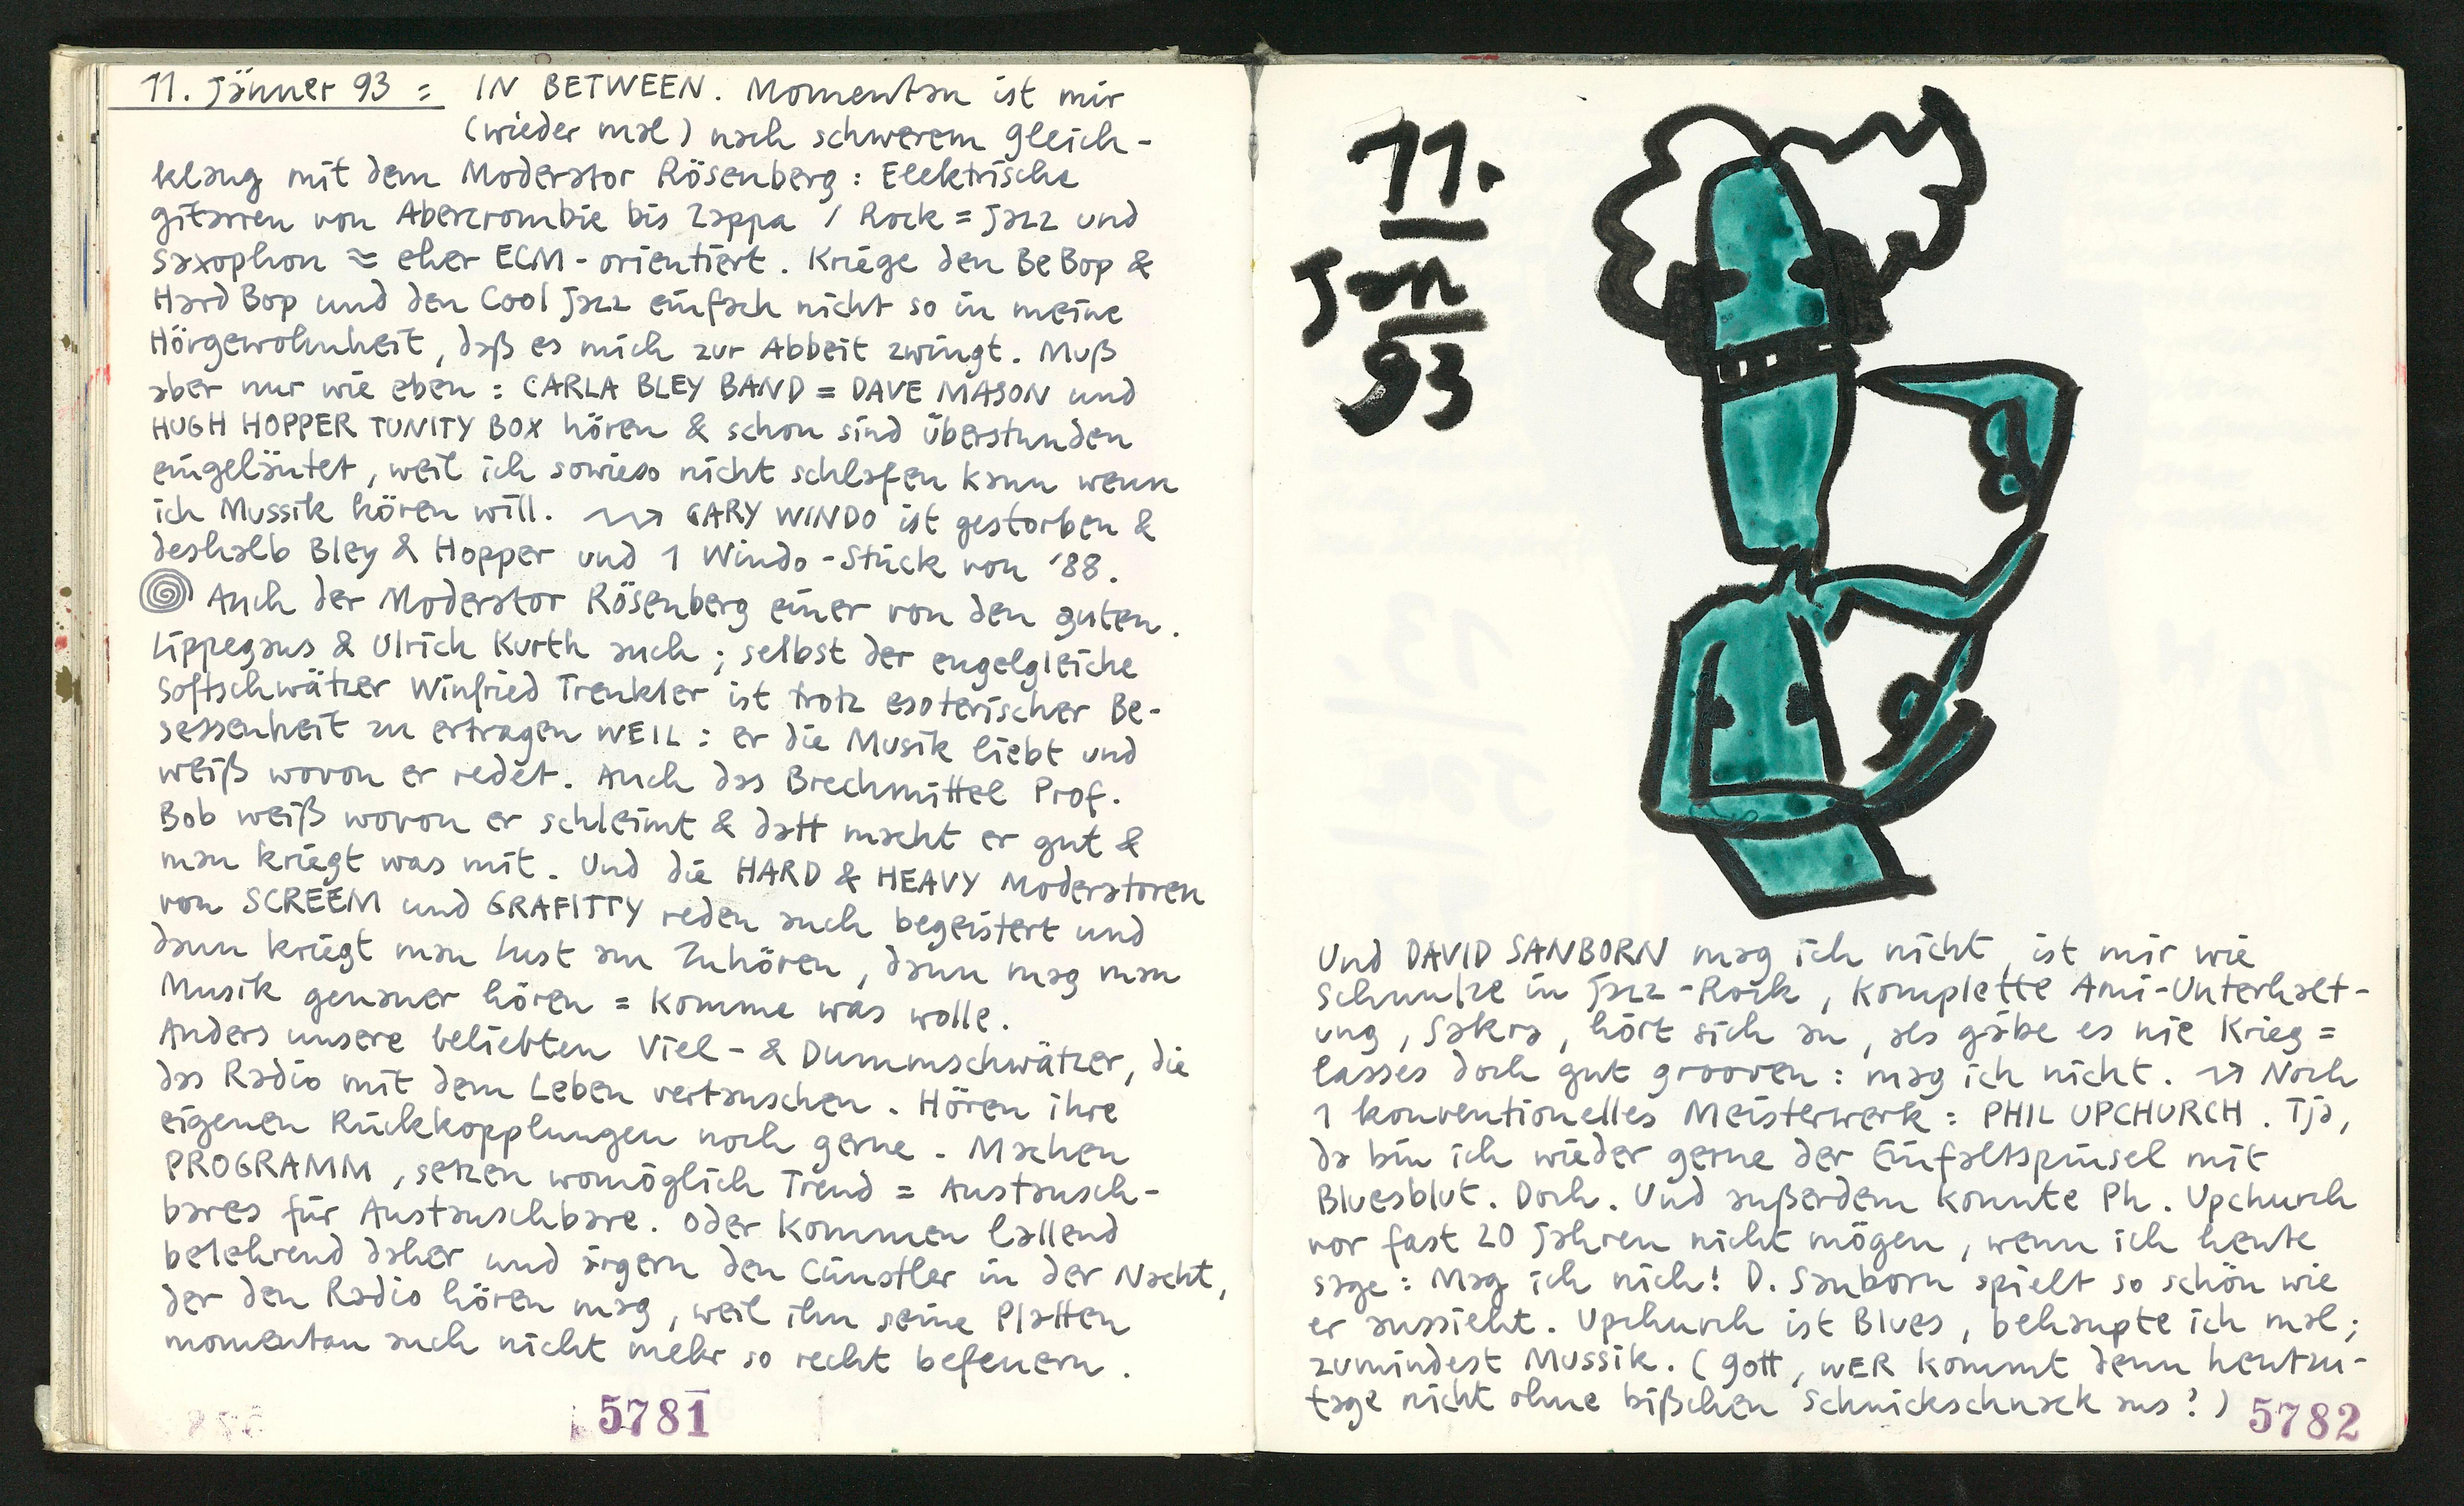 11. Jänner 93 = IN BETWEEN. Momentan ist mir
(wieder mal) nach schwerem Gleich-
klang mit dem Moderator Rösenberg: Elektrische
Gitarren von Abercrombie bis Zappa / Rock = Jazz und
Saxophon ≈ eher ECM-orientiert. Kriege den BeBop &
Hard Bop und den Cool Jazz einfach nicht so in meine
Hörgewohnheit, daß es mich zur Abbeit zwingt. Muß
aber nur wie eben: CARLA BLEY BAND = DAVE MASON und
HUGH HOPPER TUNITY BOX hören & schon sind Überstunden
eingeläutet, weil ich sowieso nicht schlafen kann wenn
ich Mussik hören will. ⇝ GARY WINDO ist gestorben &
deshalb Bley & Hopper und 1 Windo-Stück von '88.
Auch der Moderator Rösenberg einer von den guten.
Lippegaus & Ulrich Kurth auch; selbst der engelgleiche
Softschwätzer Winfried Trenkler ist trotz esoterischer Be-
sessenheit zu ertragen WEIL: er die Musik liebt und
weiß wovon er redet. Auch das Brechmittel Prof.
Bob weiß wovon er schleimt & datt macht er gut &
man kriegt was mit. Und die HARD & HEAVY Moderatoren
von SCREEM und GRAFITTY reden auch begeistert und
dann kriegt man Lust am Zuhören, dann mag man
Musik genauer hören = Komme was wolle.
Anders unsere beliebten Viel- & Dummschwätzer, die
das Radio mit dem Leben vertauschen. Hören ihre
eigenen Rückkopplungen noch gerne. Machen
PROGRAMM, setzen womöglich Trend = Austausch-
bares für Austauschbare. Oder kommen lallend
belehrend daher und ärgern den Cünstler in der Nacht,
der den Radio hören mag, weil ihn seine Platten
momentan auch nicht mehr so recht befeuern.
5781
11.
Jan
93
Und DAVID SANBORN mag ich nicht, ist mir wie
Schnulze in Jazz-Rock, komplette Ami-Unterhalt-
ung, Sakra, hört sich an, als gäbe es nie Krieg =
lasses doch gut grooven: mag ich nicht. ⇝ Noch
1 konventionelles Meisterwerk: PHIL UPCHURCH. Tja,
da bin ich wieder gerne der Einfaltspinsel mit
Bluesblut. Doch. Und außerdem konnte Ph. Upchurch
vor fast 20 Jahren nicht mögen, wenn ich heute
sage: Mag ich nich! D. Sanborn spielt so schön wie
er aussieht. Upchurch ist Blues, behaupte ich mal;
zumindest Mussik. (Gott, WER kommt denn heutzu-
tage nicht ohne bißchen Schnickschnack aus?)
5782